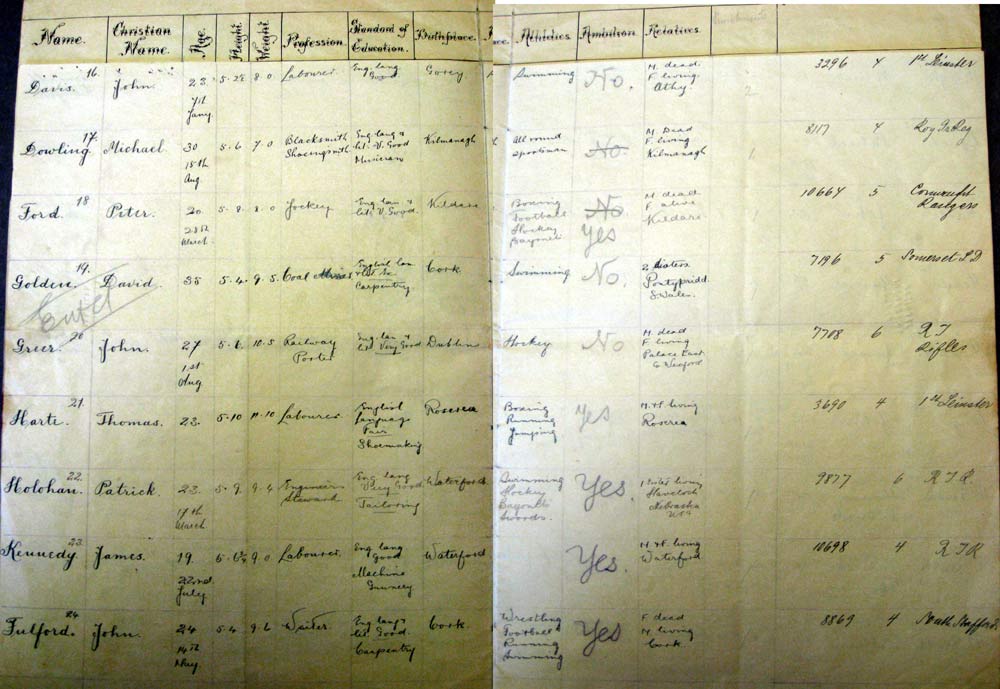 Name. Christian Name. Age. Height Weight Profession. Standard of Education. Birthplace. Athletics Ambition Relatives
16. Davis. John. 23. 7th Jany. 5-2½ 8-0 Labourer Eng. lang Good Gorey Swimming No. M. dead F. living. Athy. 2 3296 4 1st Leinster
17. Dowling Michael 30 15th Aug. 5-6 7-0 Blacksmith Shoeingsmith Eng. lang & lit. V. Good Musician Kilmanagh All round sportsman No. M. Dead F. living Kilmanagh 1 8117 4 Roy Ir Reg
18 Ford. Peter. 20. March. 5-8 8-0 Jockey Eng. Lan & lit. V. Good. Kildare Boxing Football Hockey Bayonets No Yes M. dead F. alive Kildare 1 10664 5 Connaught Rangers
19. Golden. David. 35 5-4 9-5 Coal English Lan Carpentry Cork. Swimming No. 2 Sisters Pontypridd. S. Wales. 7196 5 Somerset
20 Greer. John. 27 1st Aug 5-6 10-5 Railway Porter Eng. lan & lit Very Good Dublin Hockey No M. dead F. living Palace East Co Wexford 7708 6 Rifles
21. Harte. Thomas. 23. 5-10 11-10 Labourer. English language Fair Shoemaking Roscrea Boxing Running Jumping Yes M.&F. living Roscrea 3690 4 1st Leinster
22. Holohan. Patrick. 23. 17th March 5-9 9-4 Engineers Steward Eng lang Very Good Tailoring Waterford. Swimming Hockey Bayonets Swords. Yes. living Nebraska USA 1 9877 6 R I R
23. Kennedy James. 19 22nd July 5-6¾ 9-0 Labourer. Eng lang Good Machine Gunnery Waterford Yes. M &F. living Waterford. 10698 4 R I R
24 Fulford. John. 24 14th May. 5-4 9-6 Waiter. Eng lang & lit. Good. Carpentry Cork Wrestling Football Running Swimming Yes F. dead M. living Cork. 1 8869 4 South Stafford.